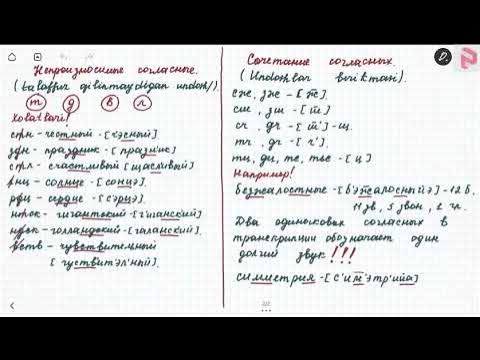 Непроизносимые согласные.
(talaffuz qilinmaydigan undosh/).
т д в л
Holatlari!
стн - честный - [ч'эсный]
здн - праздник - [праз'н'ик]
стл - счастливый [щасливый]
лнц - солнце - [сонцэ].
рдц - сердце - [с'эрцэ].
нтск - гигантский - [г'иганский]
ндск - голландский - [галанский].
вств - чувствительный
[ч'уствит'эл'ный].
Сочетание согласных.
(Undoshlar birikmasi).
сж, зж - [ж̅].
сш, зш - [ш̅]
сч, зч - [ш̅'] - щ.
тч, дч - [ч̅'].
тц, дц, тс, тьс - [ц]
Например!
безжалостные - [б'эж̅алосныйэ] - 12 б.
11 зв, 5 звон, 2 гл.
Два одинаковых согласных в
транскрипции обозначает один
долгий звук!!!
симметрия - [с'им̅'этр'ийа]